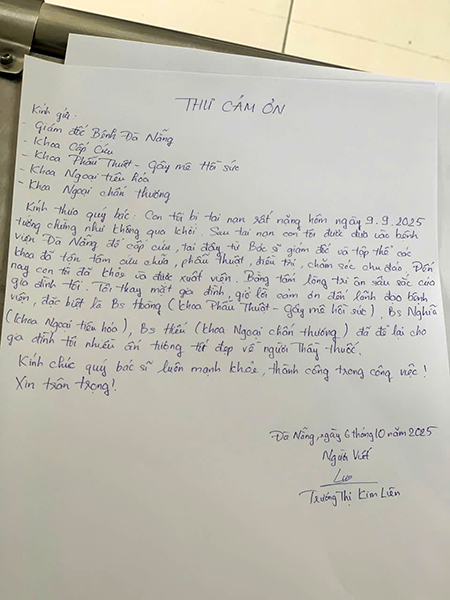 THƯ CÁM ƠN
Kính gửi:
- Giám đốc Bệnh Đà Nẵng
- Khoa Cấp Cứu
- Khoa Phẫu Thuật - Gây mê Hồi sức
- Khoa Ngoại tiêu hóa
- Khoa Ngoại chấn thương
Kính thưa quý bác: Con tôi bị tai nạn rất nặng hôm ngày 9.9.2025
tưởng chừng như không qua khỏi. Sau tai nạn con tôi được đưa vào bệnh
viện Đà Nẵng để cấp cứu, tại đây từ Bác sĩ giám đốc và tập thể các
khoa đã tận tâm cứu chữa, phẫu thuật, điều trị, chăm sóc chu đáo. Đến
nay con tôi đã khỏe và được xuất viện. Bằng tấm lòng tri ân sâu sắc của
gia đình tôi. Tôi thay mặt gia đình, gửi lời cảm ơn đến lãnh đạo bệnh
viện, đặc biệt là Bs Hoàng (khoa Phẫu Thuật - Gây mê hồi sức), Bs Nghĩa
(khoa Ngoại tiêu hóa), Bs Hiếu (khoa Ngoại chấn thương) đã để lại cho
gia đình tôi nhiều ấn tượng tốt đẹp về người Thầy thuốc.
Kính chúc quý bác sĩ luôn mạnh khỏe, thành công trong công việc!
Xin trân trọng!
Đà Nẵng, ngày 6 tháng 10 năm 2025
Người Viết
Trương Thị Kim Liên